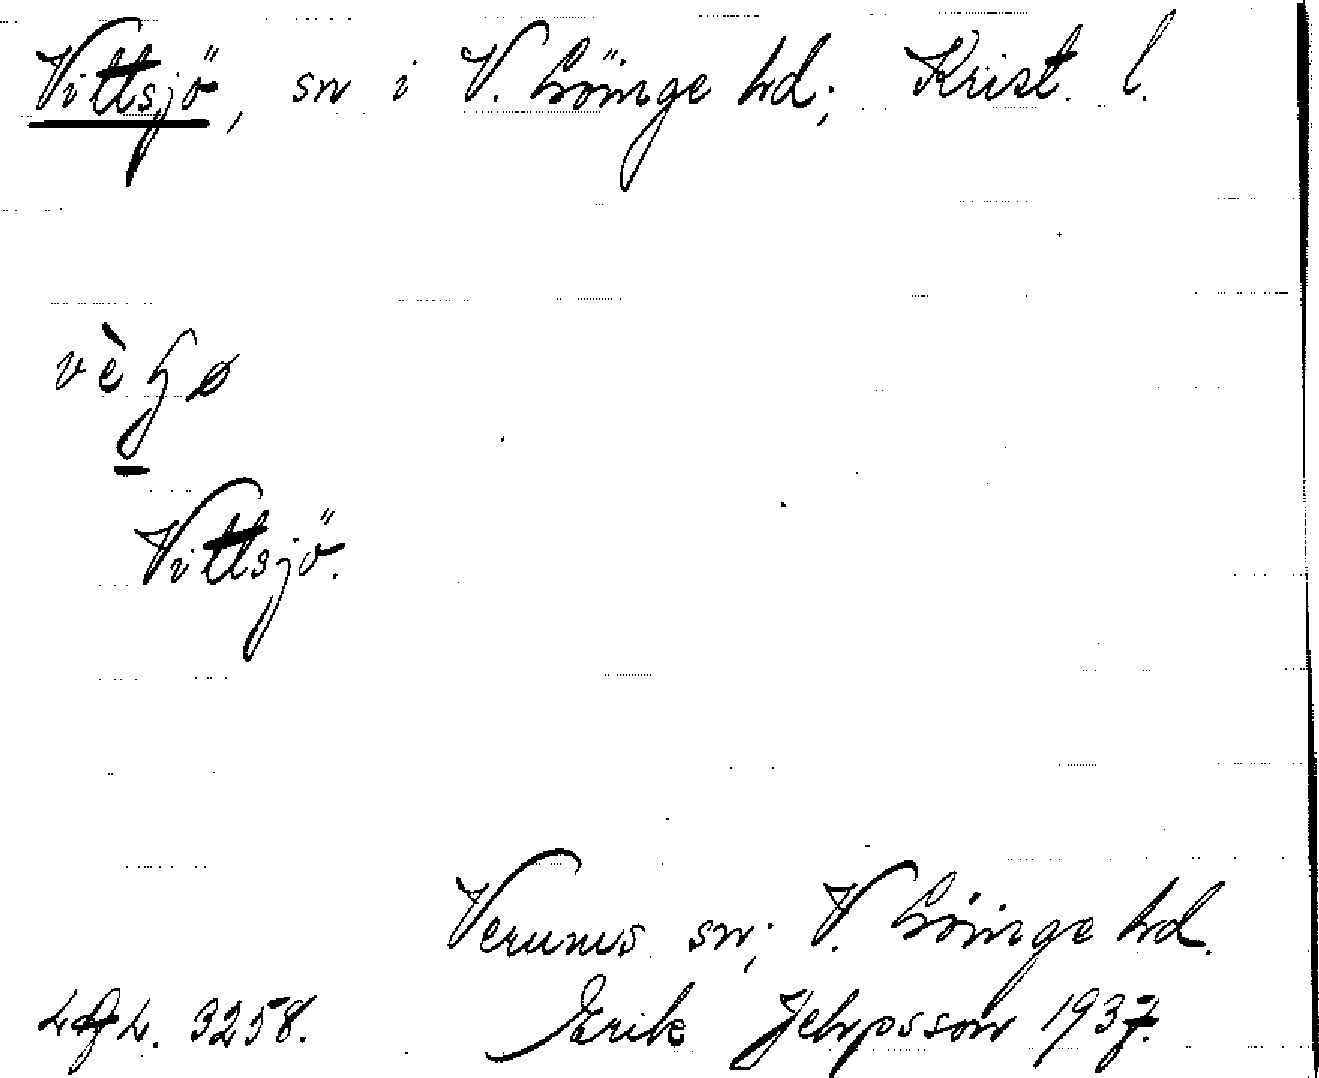 Vittsjö, sn i V. Göinge hd; Krist. l.
Vittsjö.
Verums sn; V. Göinge hd.
3258. Erik Jeppsson 1937.